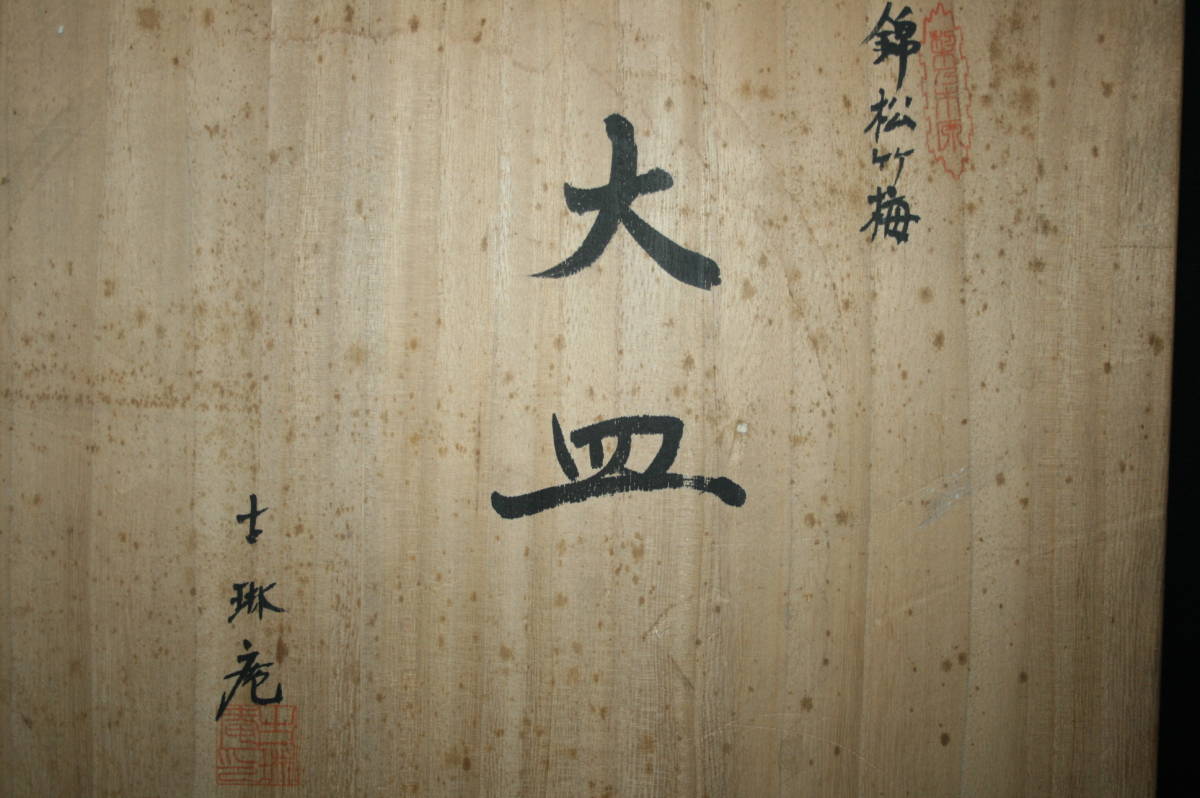 錦松竹梅
大皿
士琳庵